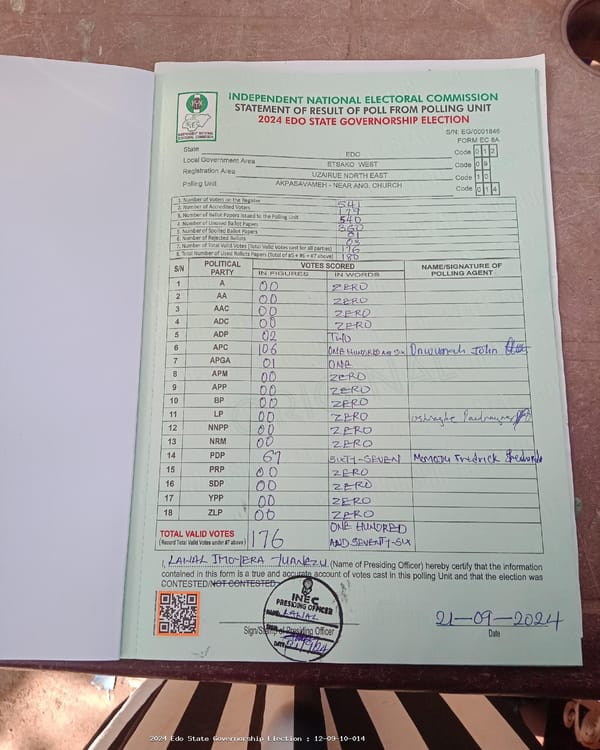 INDEPENDENT NATIONAL ELECTORAL COMMISSION
STATEMENT OF RESULT OF POLL FROM POLLING UNIT
2024 EDO STATE GOVERNORSHIP ELECTION
S/N: EG/0001846
FORM EC 8A
State EDO Code 012
Local Government Area ETSAKO WEST Code 09
Registration Area UZAIRUE NORTH EAST Code 10
Polling Unit AKPASAVAMEH - NEAR ANG. CHURCH Code 014
1. Number of Voters on the Register 541
2. Number of Accredited Voters 179
3. Number of Ballot Papers Issued to the Polling Unit 540
4. Number of Unused Ballot Papers 360
5. Number of Spoiled Ballot Papers 01
6. Number of Rejected Ballots 03
7. Number of Total Valid Votes (Total Valid Votes cast for all parties) 176
8. Total Number of Used Ballots Papers (Total of #5 + #6 + #7 above) 180
S/N POLITICAL PARTY VOTES SCORED NAME/SIGNATURE OF POLLING AGENT
IN FIGURES IN WORDS
1 A 00 ZERO
2 AA 00 ZERO
3 AAC 00 ZERO
4 ADC 00 ZERO
5 ADP 02 TWO
6 APC 106 ONE HUNDRED AND SIX John
7 APGA 01 ONE
8 APM 00 ZERO
9 APP 00 ZERO
10 BP 00 ZERO
11 LP 00 ZERO
12 NNPP 00 ZERO
13 NRM 00 ZERO
14 PDP 67 SIXTY-SEVEN Momozu Fredrick
15 PRP 00 ZERO
16 SDP 00 ZERO
17 YPP 00 ZERO
18 ZLP 00 ZERO
TOTAL VALID VOTES 176 ONE HUNDRED
(Record Total Valid Votes under #7 above) AND SEVENTY-SIX
I, LAWAL IMOYERA (Name of Presiding Officer) hereby certify that the information
contained in this form is a true and accurate account of votes cast in this polling Unit and that the election was
CONTESTED/NOT CONTESTED.
INEC
PRESIDING OFFICER
LAWAL
Sign/Stamp of Presiding Officer
DATE
21-09-2024
Date
2024 Edo State Governorship Election : 12-09-10-014